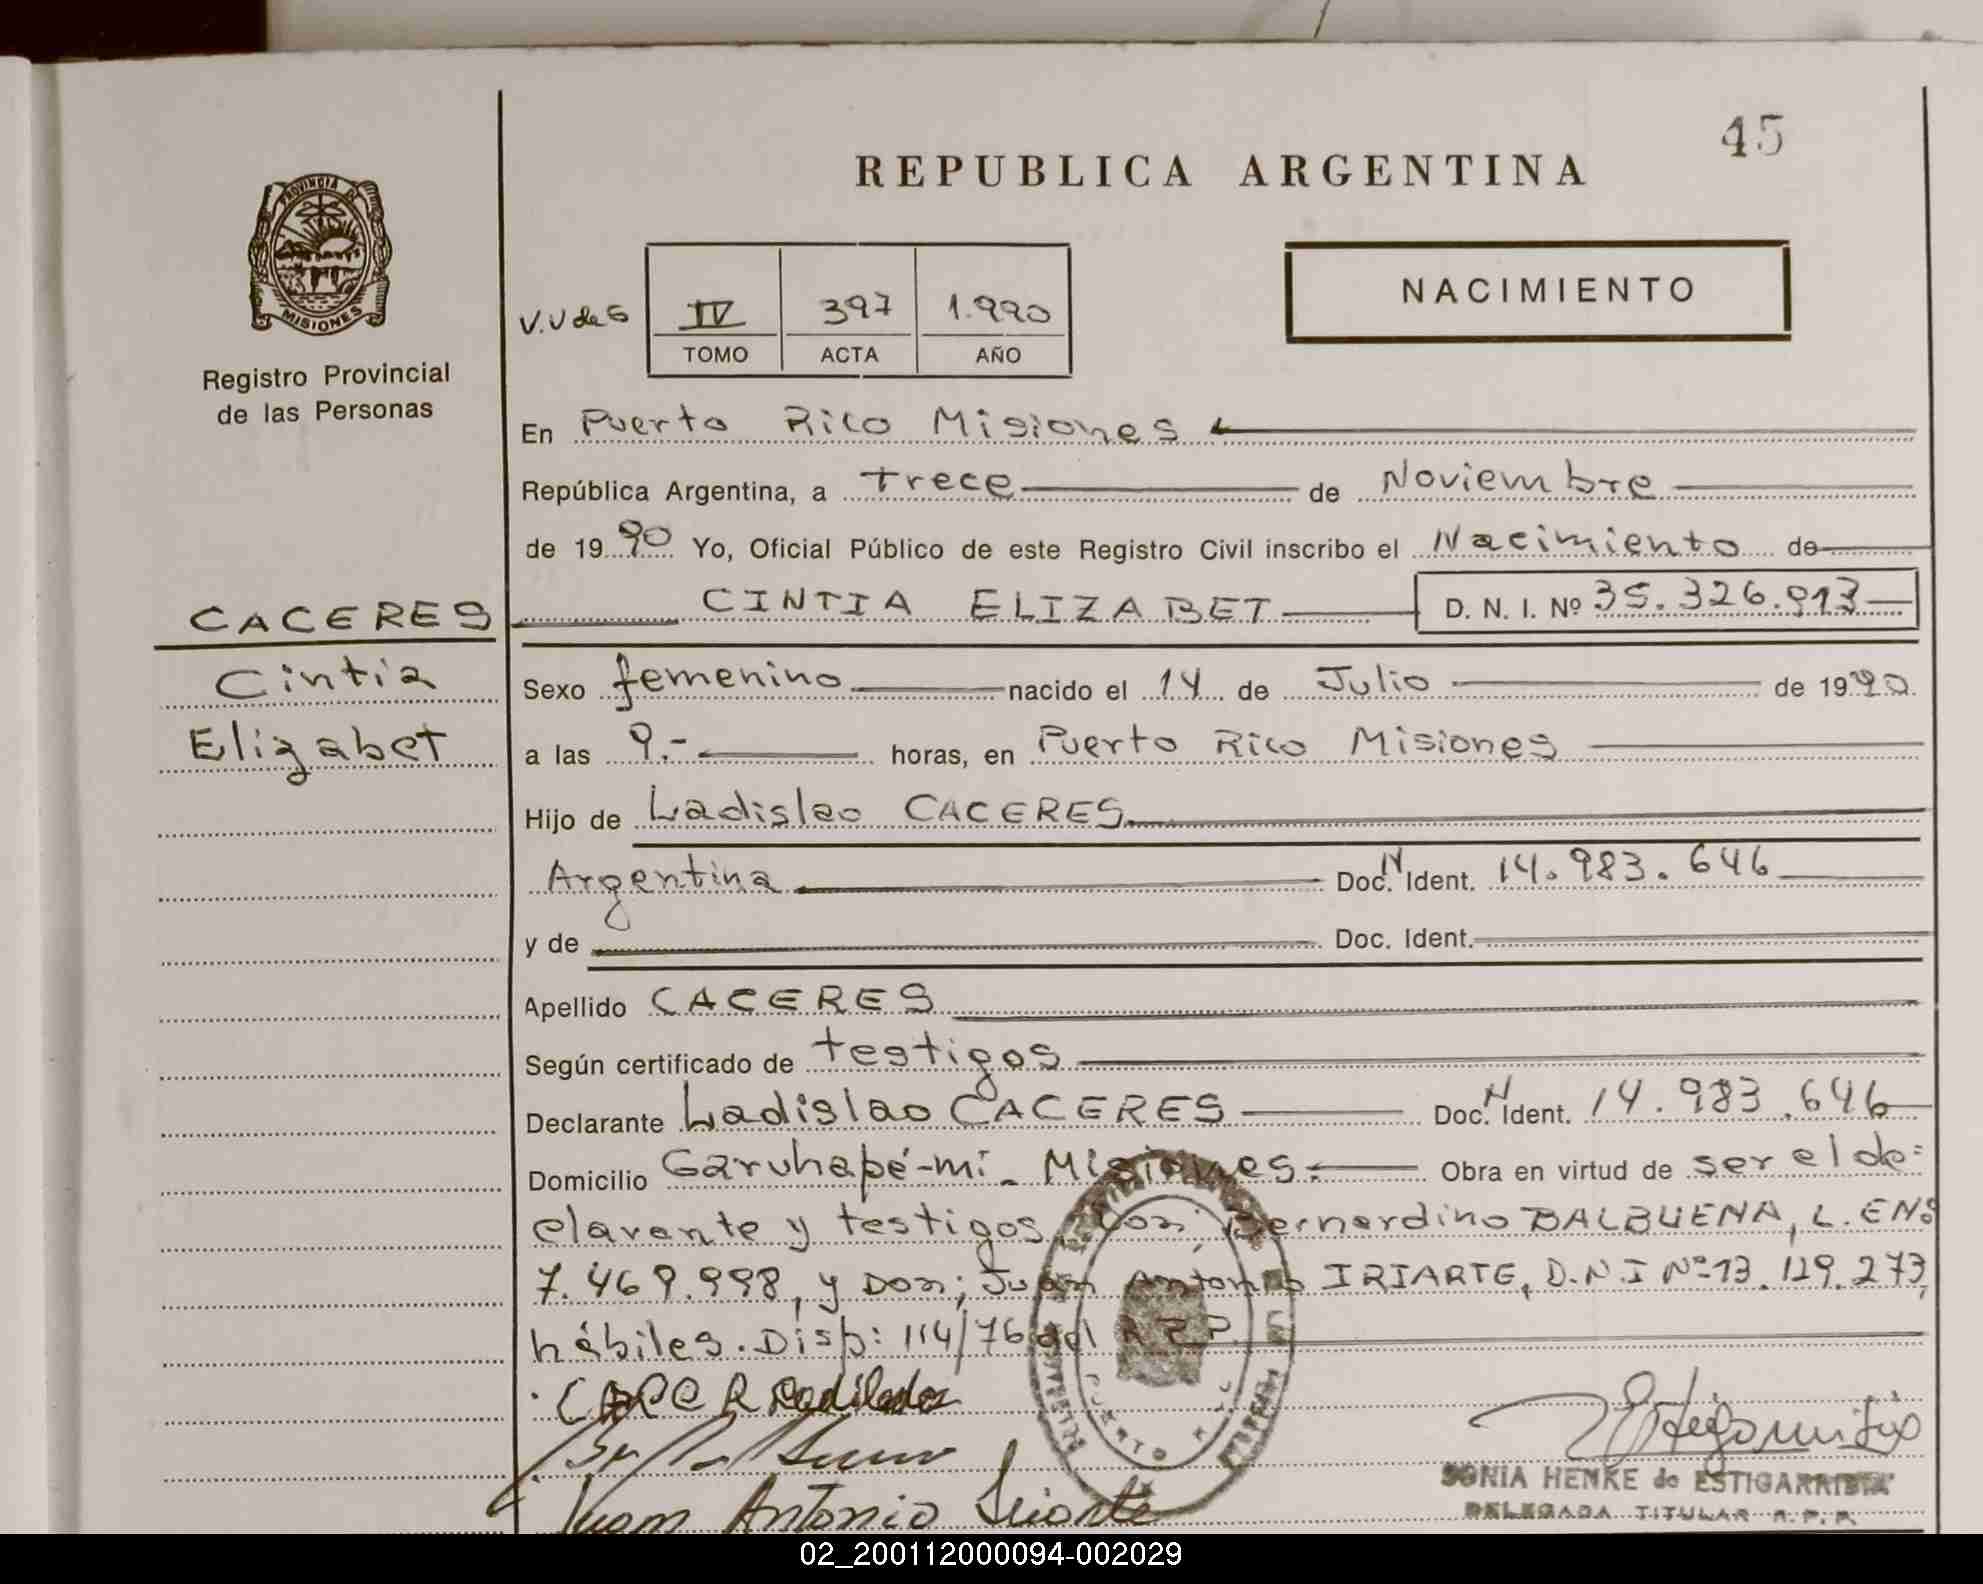 45
REPUBLICA ARGENTINA
PROVINCIA DE
MISIONES
Registro Provincial
de las Personas
NACIMIENTO
V.V de S
IV 397 1.990
TOMO ACTA AÑO
En Puerto Rico Misiones
República Argentina, a trece de Noviembre
de 1990 Yo, Oficial Público de este Registro Civil inscribo el Nacimiento de
CACERES
CINTIA ELIZABET D. N. I. Nº 35.326.913
Cintia
Sexo femenino nacido el 14 de Julio de 1990
Elizabet
a las 9.- horas, en Puerto Rico Misiones
Hijo de Ladislao CACERES
Argentina Doc. N Ident. 14.983.646
y de Doc. Ident.
Apellido CACERES
Según certificado de testigos
Declarante Ladislao CACERES Doc. N Ident. 14.983.646
Domicilio Garuhapé-mí - Misiones.- Obra en virtud de ser el de=
clarante y testigos Don; Bernardino BALBUENA, L. E Nº
7.469.998, y Don; Juan Antonio IRIARTE, D.N.I Nº 13.129.273,
hábiles. Disp: 114/76 del R.P.P.
PUERTO RICO
Juan Antonio Iriarte
SONIA HENKE de ESTIGARRIBIA
DELEGADA TITULAR R.P.P.
02_200112000094-002029